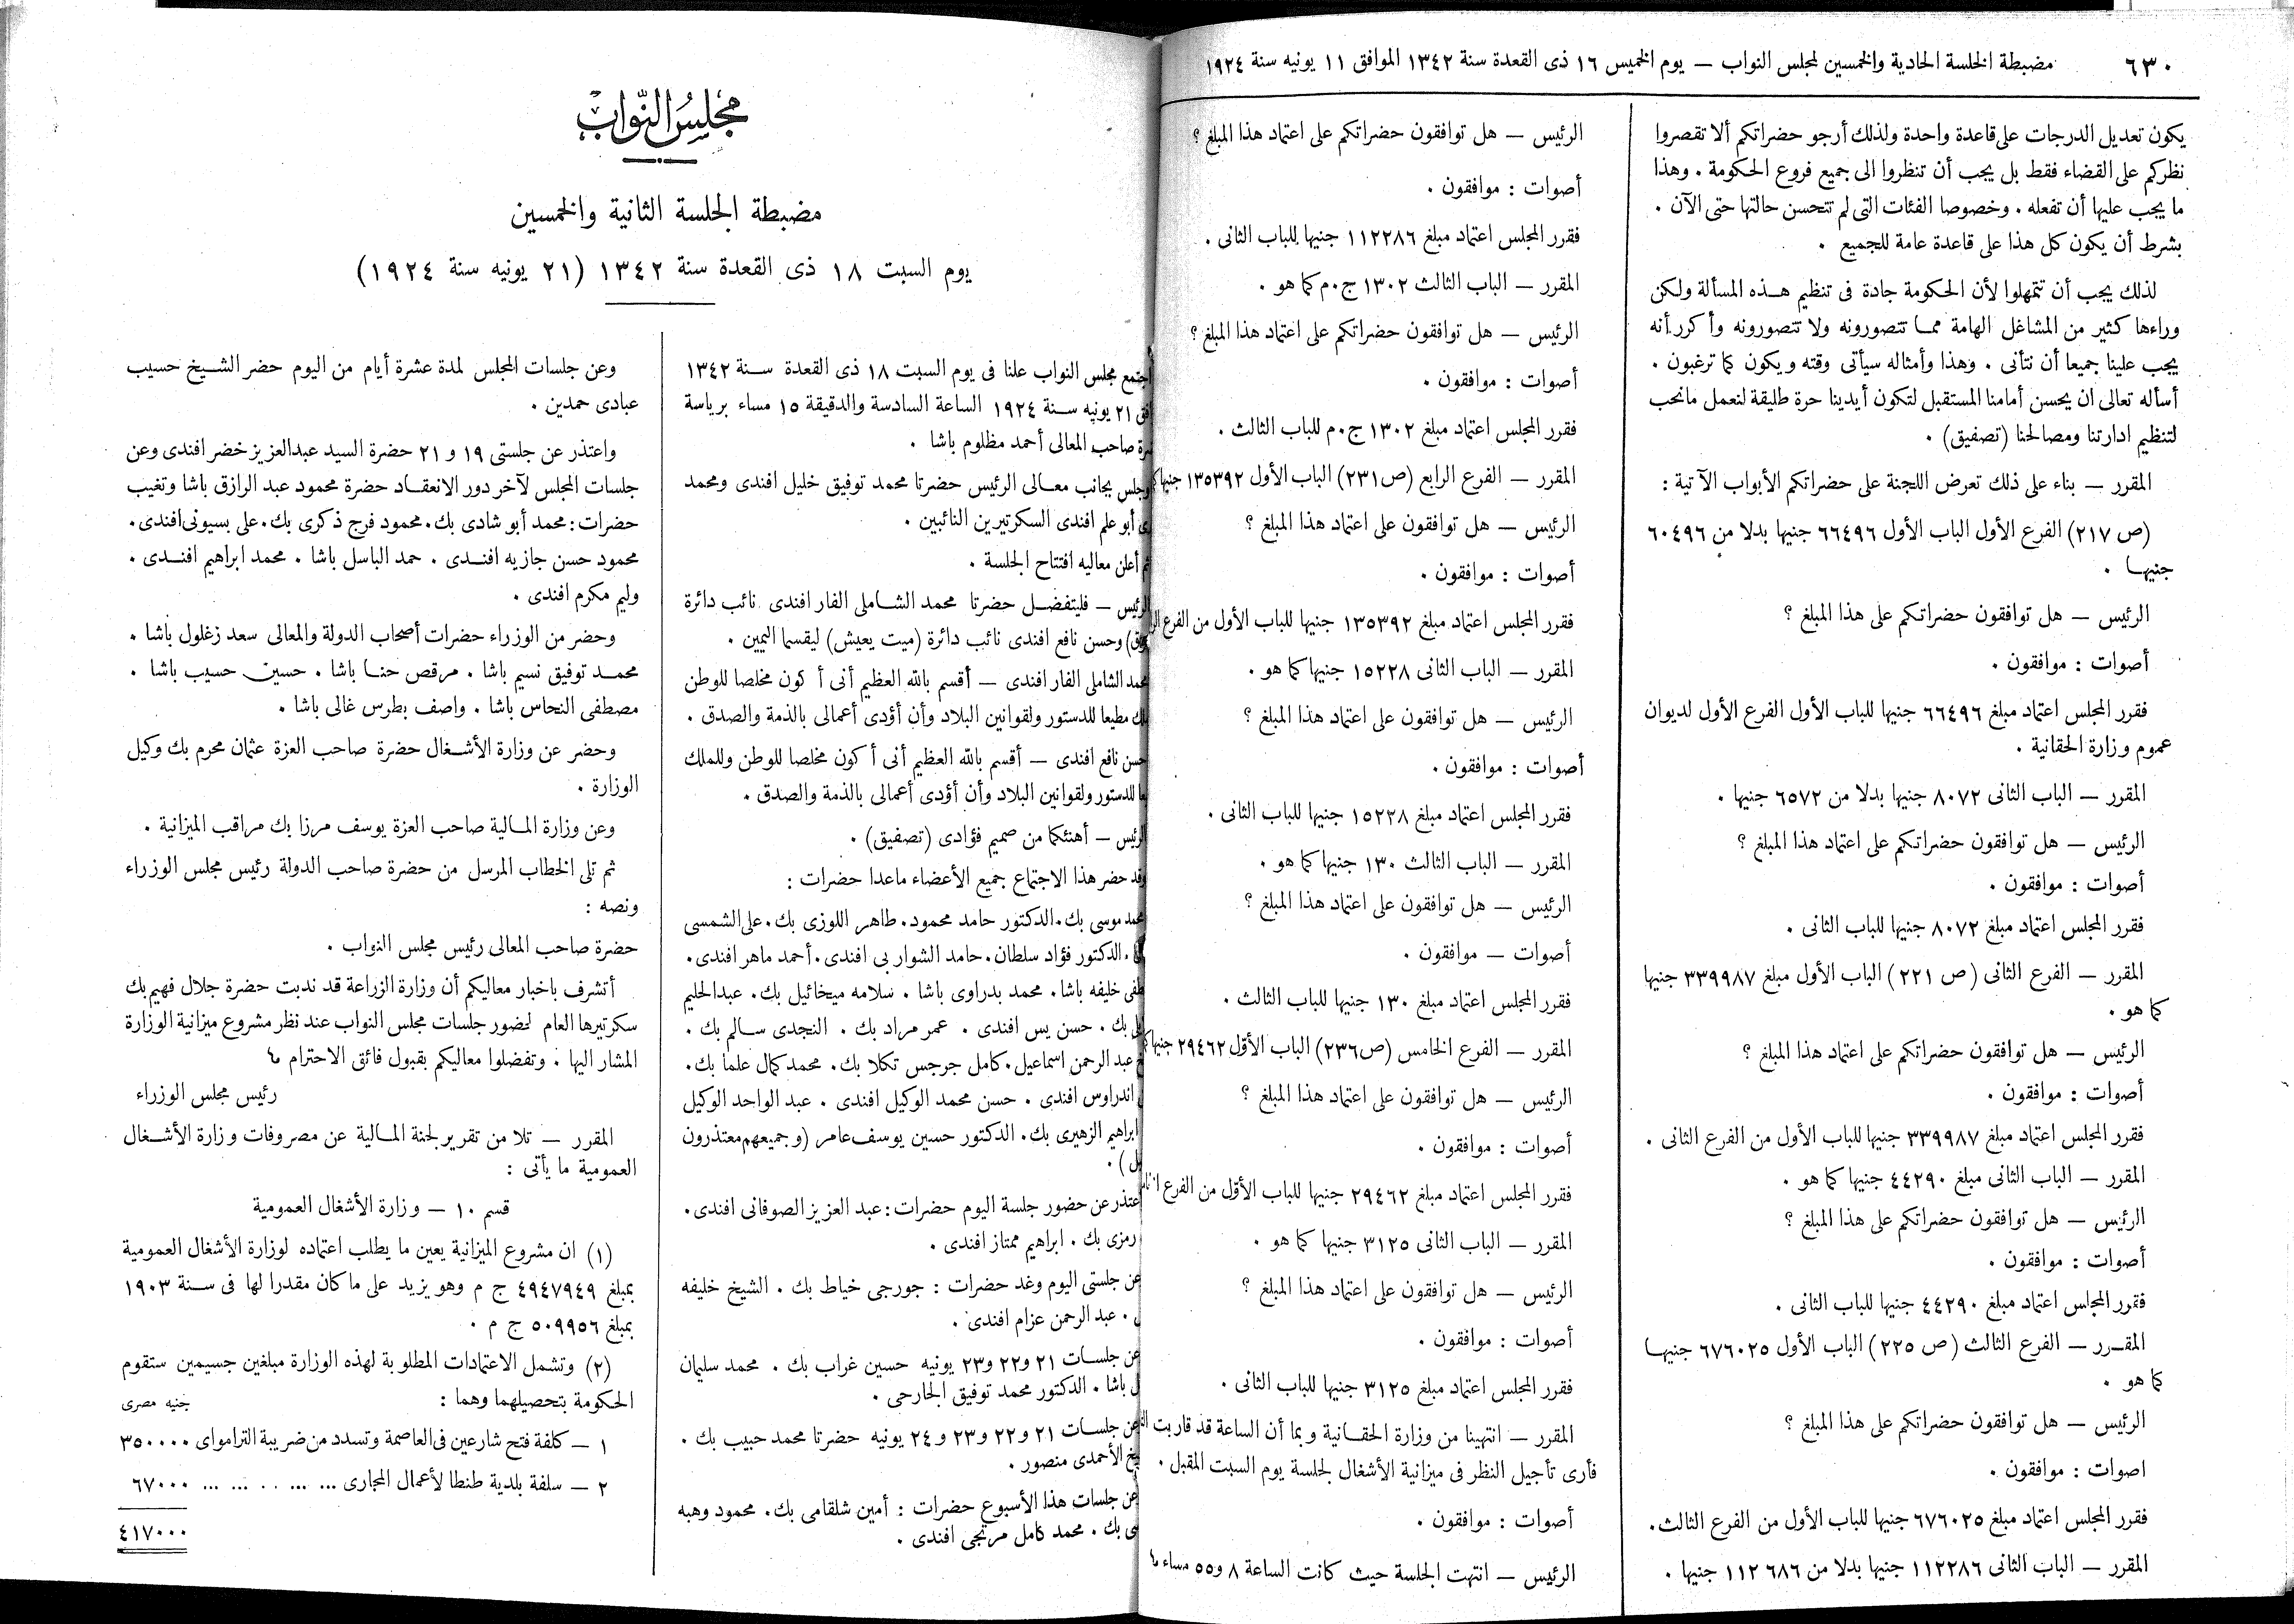 ٦٣٠
مضبطة الجلسة الحادية والخمسين لمجلس النواب — يوم الخميس ١٦ ذى القعدة سنة ١٣٤٢ الموافق ١١ يونيه سنة ١٩٢٤
يكون تعديل الدرجات على قاعدة واحدة ولذلك أرجو حضراتكم ألا تقصروا
نظركم على القضاء فقط بل يجب أن تنظروا الى جميع فروع الحكومة . وهذا
ما يجب عليها أن تفعله . وخصوصا الفئات التى لم تتحسن حالتها حتى الآن .
بشرط أن يكون كل هذا على قاعدة عامة للجميع .
لذلك يجب أن تتمهلوا لأن الحكومة جادة فى تنظيم هذه المسألة ولكن
وراءها كثير من المشاغل الهامة مما تتصورونه ولا تتصورونه وأكرر أنه
يجب علينا جميعا أن نتأنى . وهذا وأمثاله سيأتى وقته ويكون كما ترغبون .
أسأله تعالى ان يحسن أمامنا المستقبل لتكون أيدينا حرة طليقة لنعمل مانحب
لتنظيم ادارتنا ومصالحنا (تصفيق) .
المقرر — بناء على ذلك تعرض اللجنة على حضراتكم الأبواب الآتية :
(ص ٢١٧) الفرع الأول الباب الأول ٦٦٤٩٦ جنيها بدلا من ٦٠٤٩٦
جنيها .
الرئيس — هل توافقون حضراتكم على هذا المبلغ ؟
أصوات : موافقون .
فقرر المجلس اعتماد مبلغ ٦٦٤٩٦ جنيها للباب الأول الفرع الأول لديوان
عموم وزارة الحقانية .
المقرر — الباب الثانى ٨٠٧٢ جنيها بدلا من ٦٥٧٢ جنيها .
الرئيس — هل توافقون حضراتكم على اعتماد هذا المبلغ ؟
أصوات : موافقون .
فقرر المجلس اعتماد مبلغ ٨٠٧٢ جنيها للباب الثانى .
المقرر — الفرع الثانى (ص ٢٢١) الباب الأول مبلغ ٣٣٩٩٨٧ جنيها
كما هو .
الرئيس — هل توافقون حضراتكم على اعتماد هذا المبلغ ؟
أصوات : موافقون .
فقرر المجلس اعتماد مبلغ ٣٣٩٩٨٧ جنيها للباب الأول من الفرع الثانى .
المقرر — الباب الثانى مبلغ ٤٤٢٩٠ جنيها كما هو .
الرئيس — هل توافقون حضراتكم على هذا المبلغ ؟
أصوات : موافقون .
فقرر المجلس اعتماد مبلغ ٤٤٢٩٠ جنيها للباب الثانى .
المقرر — الفرع الثالث (ص ٢٢٥) الباب الأول ٦٧٦٠٢٥ جنيها
كما هو .
الرئيس — هل توافقون حضراتكم على هذا المبلغ ؟
اصوات : موافقون .
فقرر المجلس اعتماد مبلغ ٦٧٦٠٢٥ جنيها للباب الأول من الفرع الثالث.
المقرر — الباب الثانى ١١٢٢٨٦ جنيها بدلا من ١١٢٦٨٦ جنيها .
الرئيس — هل توافقون حضراتكم على اعتماد هذا المبلغ ؟
أصوات : موافقون .
فقرر المجلس اعتماد مبلغ ١١٢٢٨٦ جنيها للباب الثانى .
المقرر — الباب الثالث ١٣٠٢ ج.م كما هو .
الرئيس — هل توافقون حضراتكم على اعتماد هذا المبلغ ؟
أصوات : موافقون .
فقرر المجلس اعتماد مبلغ ١٣٠٢ ج.م للباب الثالث .
المقرر — الفرع الرابع (ص ٢٣١) الباب الأول ١٣٥٣٩٢ جنيها
الرئيس — هل توافقون على اعتماد هذا المبلغ ؟
أصوات : موافقون .
فقرر المجلس اعتماد مبلغ ١٣٥٣٩٢ جنيها للباب الأول من الفرع
المقرر — الباب الثانى ١٥٢٢٨ جنيها كما هو .
الرئيس — هل توافقون على اعتماد هذا المبلغ ؟
أصوات : موافقون .
فقرر المجلس اعتماد مبلغ ١٥٢٢٨ جنيها للباب الثانى .
المقرر — الباب الثالث ١٣٠ جنيها كما هو .
الرئيس — هل توافقون على اعتماد هذا المبلغ ؟
أصوات — موافقون .
فقرر المجلس اعتماد مبلغ ١٣٠ جنيها للباب الثالث .
المقرر — الفرع الخامس (ص ٢٣٦) الباب الأول ٢٩٤٦٢ جنيها
الرئيس — هل توافقون على اعتماد هذا المبلغ ؟
أصوات : موافقون .
فقرر المجلس اعتماد مبلغ ٢٩٤٦٢ جنيها للباب الأول من الفرع
المقرر — الباب الثانى ٣١٢٥ جنيها كما هو .
الرئيس — هل توافقون على اعتماد هذا المبلغ ؟
أصوات : موافقون .
فقرر المجلس اعتماد مبلغ ٣١٢٥ جنيها للباب الثانى .
المقرر — انتهينا من وزارة الحقانية وبما أن الساعة قد قاربت
فأرى تأجيل النظر فى ميزانية الأشغال لجلسة يوم السبت المقبل .
أصوات : موافقون .
الرئيس — انتهت الجلسة حيث كانت الساعة ٨ و٥٥ مساء
مجلس النواب
مضبطة الجلسة الثانية والخمسين
يوم السبت ١٨ ذى القعدة سنة ١٣٤٢ (٢١ يونيه سنة ١٩٢٤)
اجتمع مجلس النواب علنا فى يوم السبت ١٨ ذى القعدة سنة ١٣٤٢
٢١ يونيه سنة ١٩٢٤ الساعة السادسة والدقيقة ١٥ مساء برياسة
صاحب المعالى أحمد مظلوم باشا .
وجلس بجانب معالى الرئيس حضرتا محمد توفيق خليل افندى ومحمد
أبو علم افندى السكرتيرين النائبين .
ثم أعلن معاليه افتتاح الجلسة .
الرئيس — فليتفضل حضرتا محمد الشاملى الفار افندى نائب دائرة
وحسن نافع افندى نائب دائرة (ميت يعيش) ليقسما اليمين .
محمد الشاملى الفار افندى — أقسم بالله العظيم أنى أكون مخلصا للوطن
مطيعا للدستور ولقوانين البلاد وأن أؤدى أعمالى بالذمة والصدق .
حسن نافع افندى — أقسم بالله العظيم أنى أكون مخلصا للوطن وللملك
للدستور ولقوانين البلاد وأن أؤدى أعمالى بالذمة والصدق .
الرئيس — أهنئكما من صميم فؤادى (تصفيق) .
وقد حضر هذا الاجتماع جميع الأعضاء ماعدا حضرات :
محمد موسى بك . الدكتور حامد محمود . طاهر اللوزى بك . على الشمسى
الدكتور فؤاد سلطان . حامد الشواربى افندى . أحمد ماهر افندى .
خليفه باشا . محمد بدراوى باشا . سلامه ميخائيل بك . عبدالحليم
بك . حسن يس افندى . عمر مراد بك . النجدى سالم بك .
عبد الرحمن اسماعيل . كامل جرجس تكلا بك . محمد كمال علما بك .
اندراوس افندى . حسن محمد الوكيل افندى . عبد الواحد الوكيل
ابراهيم الزهيرى بك . الدكتور حسين يوسف عامر (وجميعهم معتذرون
) .
اعتذر عن حضور جلسة اليوم حضرات : عبد العزيز الصوفانى افندى .
رمزى بك . ابراهيم ممتاز افندى .
عن جلستى اليوم وغد حضرات : جورجى خياط بك . الشيخ خليفه
. عبد الرحمن عزام افندى .
عن جلسات ٢١ و٢٢ و٢٣ يونيه حسين غراب بك . محمد سليمان
باشا . الدكتور محمد توفيق الجارحى .
عن جلسات ٢١ و٢٢ و٢٣ و٢٤ يونيه حضرتا محمد حبيب بك .
الأحمدى منصور .
عن جلسات هذا الأسبوع حضرات : أمين شلقامى بك . محمود وهبه
بك . محمد كامل مرتجى افندى .
وعن جلسات المجلس لمدة عشرة أيام من اليوم حضر الشيخ حسيب
عبادى حمدين .
واعتذر عن جلستى ١٩ و ٢١ حضرة السيد عبدالعزيز خضر افندى وعن
جلسات المجلس لآخر دور الانعقاد حضرة محمود عبد الرازق باشا وتغيب
حضرات : محمد أبو شادى بك . محمود فرج ذكرى بك . على بسيونى افندى .
محمود حسن جازيه افندى . حمد الباسل باشا . محمد ابراهيم افندى .
وليم مكرم افندى .
وحضر من الوزراء حضرات أصحاب الدولة والمعالى سعد زغلول باشا .
محمد توفيق نسيم باشا . مرقص حنا باشا . حسين حسيب باشا .
مصطفى النحاس باشا . واصف بطرس غالى باشا .
وحضر عن وزارة الأشغال حضرة صاحب العزة عثمان محرم بك وكيل
الوزارة .
وعن وزارة المالية صاحب العزة يوسف مرزا بك مراقب الميزانية .
ثم تلى الخطاب المرسل من حضرة صاحب الدولة رئيس مجلس الوزراء
ونصه :
حضرة صاحب المعالى رئيس مجلس النواب .
أتشرف باخبار معاليكم أن وزارة الزراعة قد ندبت حضرة جلال فهيم بك
سكرتيرها العام لحضور جلسات مجلس النواب عند نظر مشروع ميزانية الوزارة
المشار اليها . وتفضلوا معاليكم بقبول فائق الاحترام
رئيس مجلس الوزراء
المقرر — تلا من تقرير لجنة المالية عن مصروفات وزارة الأشغال
العمومية ما يأتى :
قسم ١٠ — وزارة الأشغال العمومية
(١) ان مشروع الميزانية يعين ما يطلب اعتماده لوزارة الأشغال العمومية
بمبلغ ٤٩٤٧٩٤٩ ج م وهو يزيد على ما كان مقدرا لها فى سنة ١٩٠٣
بمبلغ ٥٠٩٩٥٦ ج م .
(٢) وتشمل الاعتمادات المطلوبة لهذه الوزارة مبلغين جسيمين ستقوم
الحكومة بتحصيلهما وهما :
جنيه مصرى
١ — كلفة فتح شارعين فى العاصمة وتسدد من ضريبة التراموای ٣٥٠٠٠٠
٢ — سلفة بلدية طنطا لأعمال المجارى ... ... .. ... ... ٦٧٠٠٠
٤١٧٠٠٠